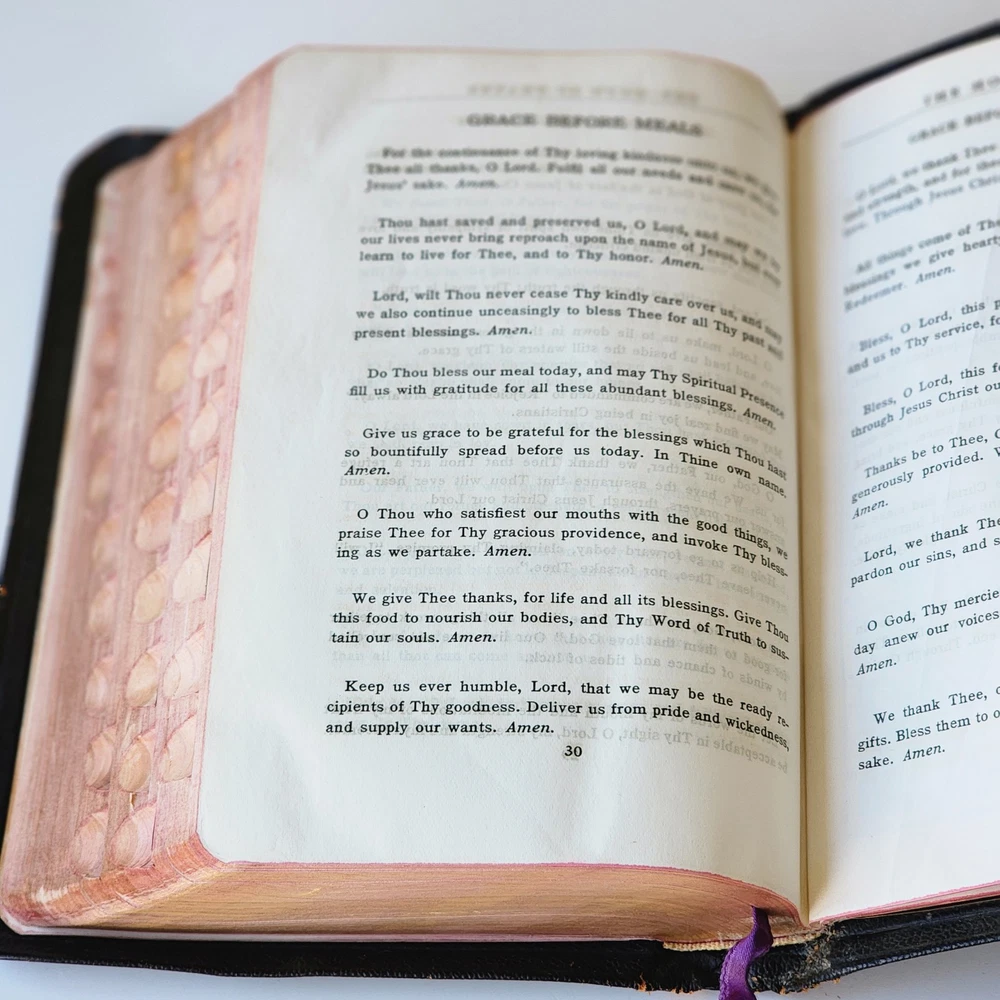 GRACE BEFORE MEALS
For the continuance of Thy loving kindness
Thee all thanks, O Lord. Fulfil all our needs and
Jesus' sake. Amen.
Thou hast saved and preserved us, O Lord, and may
our lives never bring reproach upon the name of Jesus, but
learn to live for Thee, and to Thy honor. Amen.
Lord, wilt Thou never cease Thy kindly care over us, and may
we also continue unceasingly to bless Thee for all Thy past and
present blessings. Amen.
Do Thou bless our meal today, and may Thy Spiritual Presence
fill us with gratitude for all these abundant blessings. Amen.
Give us grace to be grateful for the blessings which Thou hast
so bountifully spread before us today. In Thine own name.
Amen.
O Thou who satisfiest our mouths with the good things, we
praise Thee for Thy gracious providence, and invoke Thy bless-
ing as we partake. Amen.
We give Thee thanks, for life and all its blessings. Give Thou
this food to nourish our bodies, and Thy Word of Truth to sus-
tain our souls. Amen.
Keep us ever humble, Lord, that we may be the ready re-
cipients of Thy goodness. Deliver us from pride and wickedness,
and supply our wants. Amen.
30
THE
GRACE
we thank Thee
and strength, and for the
Through Jesus
All things come of
blessings we give
Redeemer. Amen.
Bless, O Lord, this
and us to Thy service,
Bless, O Lord, this
through Jesus Christ
Thanks be to Thee,
generously provided.
Amen.
Lord, we thank
pardon our sins, and
O God, Thy
day anew our voices
Amen.
We thank Thee,
gifts. Bless them to
sake. Amen.